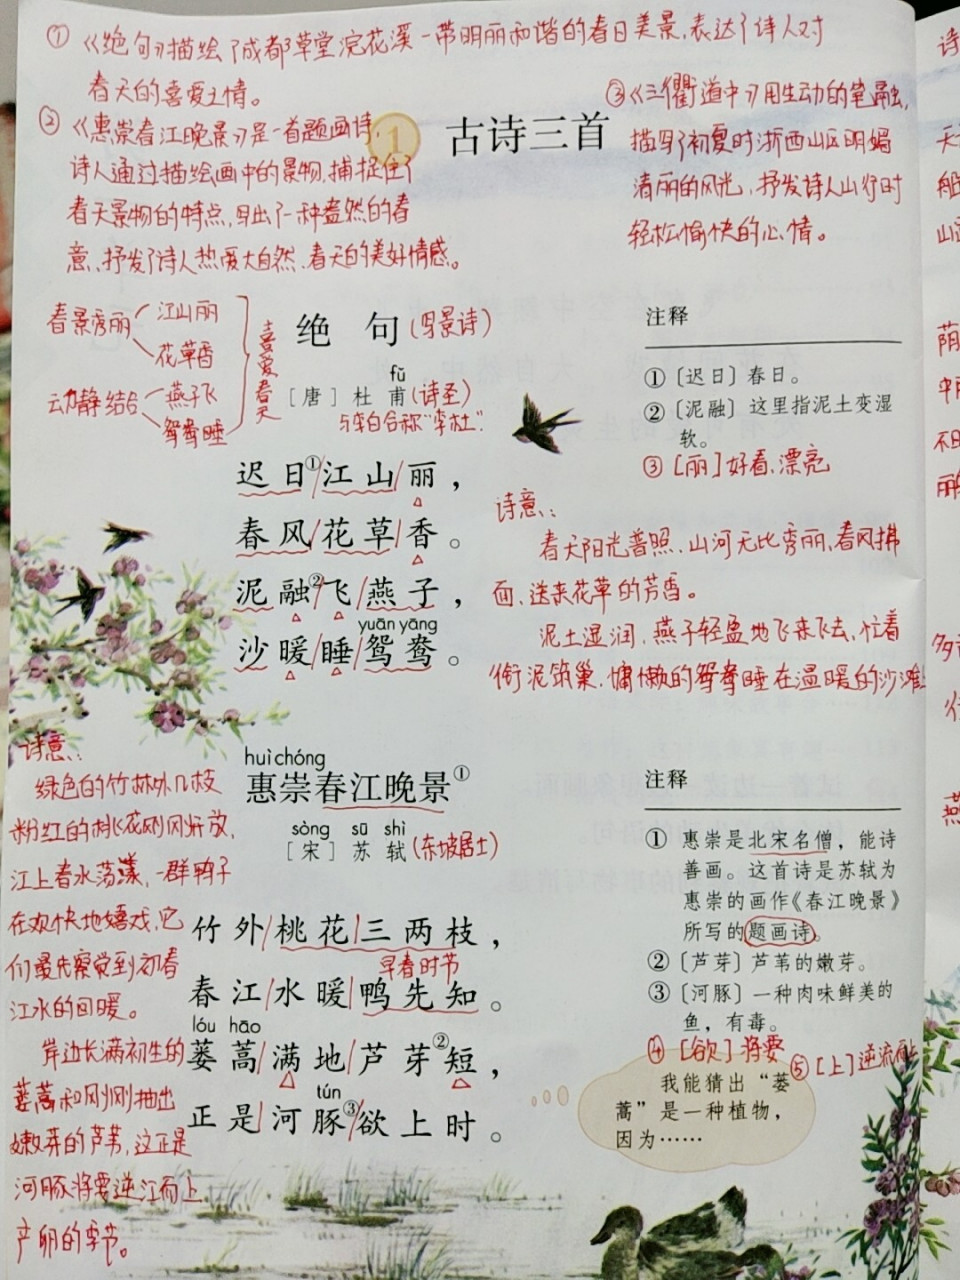 ① 《绝句》描绘了成都草堂浣花溪一带明丽和谐的春日美景,表达了诗人对
春天的喜爱之情。
② 《惠崇春江晚景》是一首题画诗,
诗人通过描绘画中的景物,捕捉住了
春天景物的特点,写出了一种盎然的春
意、抒发了诗人热爱大自然、春天的美好情感。
1 古诗三首
③《三衢道中》用生动的笔融,
描写了初夏时浙西山区明媚
清丽的风光,抒发诗人山行时
轻松愉快的心情。
春景秀丽 江山丽
花草香
动静结合 燕子飞
鸳鸯睡
喜爱春天
绝 句(写景诗)
fǔ
[唐] 杜 甫(诗圣)
与李白合称“李杜”.
迟日①/江山/丽，
春风/花草/香。
泥融②/飞/燕子，
yuān yāng
沙暖/睡/鸳鸯。
注释
①〔迟日〕春日。
②〔泥融〕这里指泥土变湿
软。
③ [丽]好看、漂亮
诗意:
春天阳光普照,山河无比秀丽,春风拂
面、送来花草的芳香。
泥土湿润,燕子轻盈地飞来飞去,忙着
衔泥筑巢,慵懒的鸳鸯睡在温暖的沙滩上
诗意:
绿色的竹林外几枝
粉红的桃花刚刚开放,
江上春水荡漾,一群鸭子
在欢快地嬉戏,它
们最先察觉到初春
江水的回暖。
岸边长满初生的
蒌蒿和刚刚抽出
嫩芽的芦苇,这正是
河豚将要逆江而上
产卵的季节。
huì chóng
惠崇春江晚景①
sòng sū shì
[宋] 苏 轼(东坡居士)
竹外/桃花/三两枝，
早春时节
春江/水暖/鸭先知。
lóu hāo
蒌蒿/满地/芦芽②短，
tún
正是/河豚③/欲上时。
注释
① 惠崇是北宋名僧，能诗
善画。这首诗是苏轼为
惠崇的画作《春江晚景》
所写的题画诗。
②〔芦芽〕芦苇的嫩芽。
③〔河豚〕一种肉味鲜美的
鱼，有毒。
④ [欲]将要
⑤ [上]逆流而上
我能猜出“蒌
蒿”是一种植物，
因为……